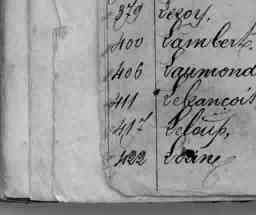 379 Leroy.
400 Lambert.
406 Laumond
411 Lefrançois
417 Leloup,
422